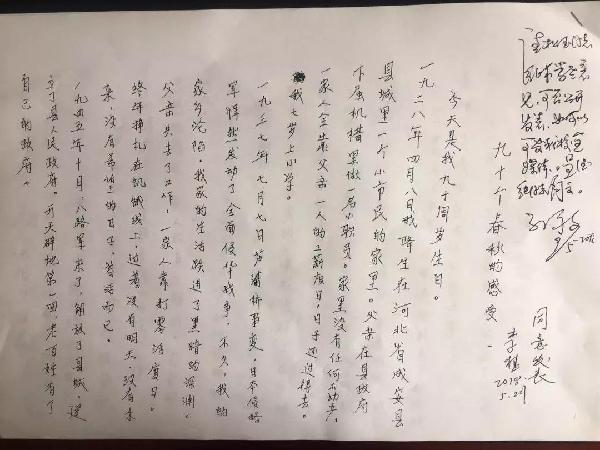 同意发表
2018
5.29
九十个春秋的感受
今天是我九十周岁生日。
一九二八年四月八日我降生在河北省成安县
县城里一个小市民的家里。父亲在县政府
下属机構里做一名小职员。家里没有任何不动产,
一家人全靠父亲一人的工薪度日,日子还过得去。
我七岁上小学。
一九三七年七月七日芦溝桥事变,日本侵略
军悍然发动了全面侵华战争,不久,我的
家乡沦陷。我家的生活跌进了黑暗的深渊。
父亲失去了工作,一家人靠打零活度日。
终年挣扎在饥饿线上,过着没有明天,没有未
来,没有希望的日子,苦活而已。
一九四五年十月,八路军来了,解放了县城,建
立了县人民政府。开天辟地第一回,老百姓有了
自己的政府。